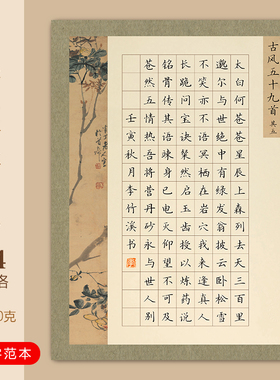 古风五十九首 其五
太白何苍苍星辰上森列去天三百里
邈尔与世绝中有绿发翁披云卧松雪
不笑亦不语冥栖在岩穴我来逢真人
长跪问宝诀粲然启玉齿授以炼药说
铭骨传其语竦身已电灭仰望不可及
苍然五情热吾将营丹砂永与世人别
壬寅秋月李竹溪书
4
格
0克
范本